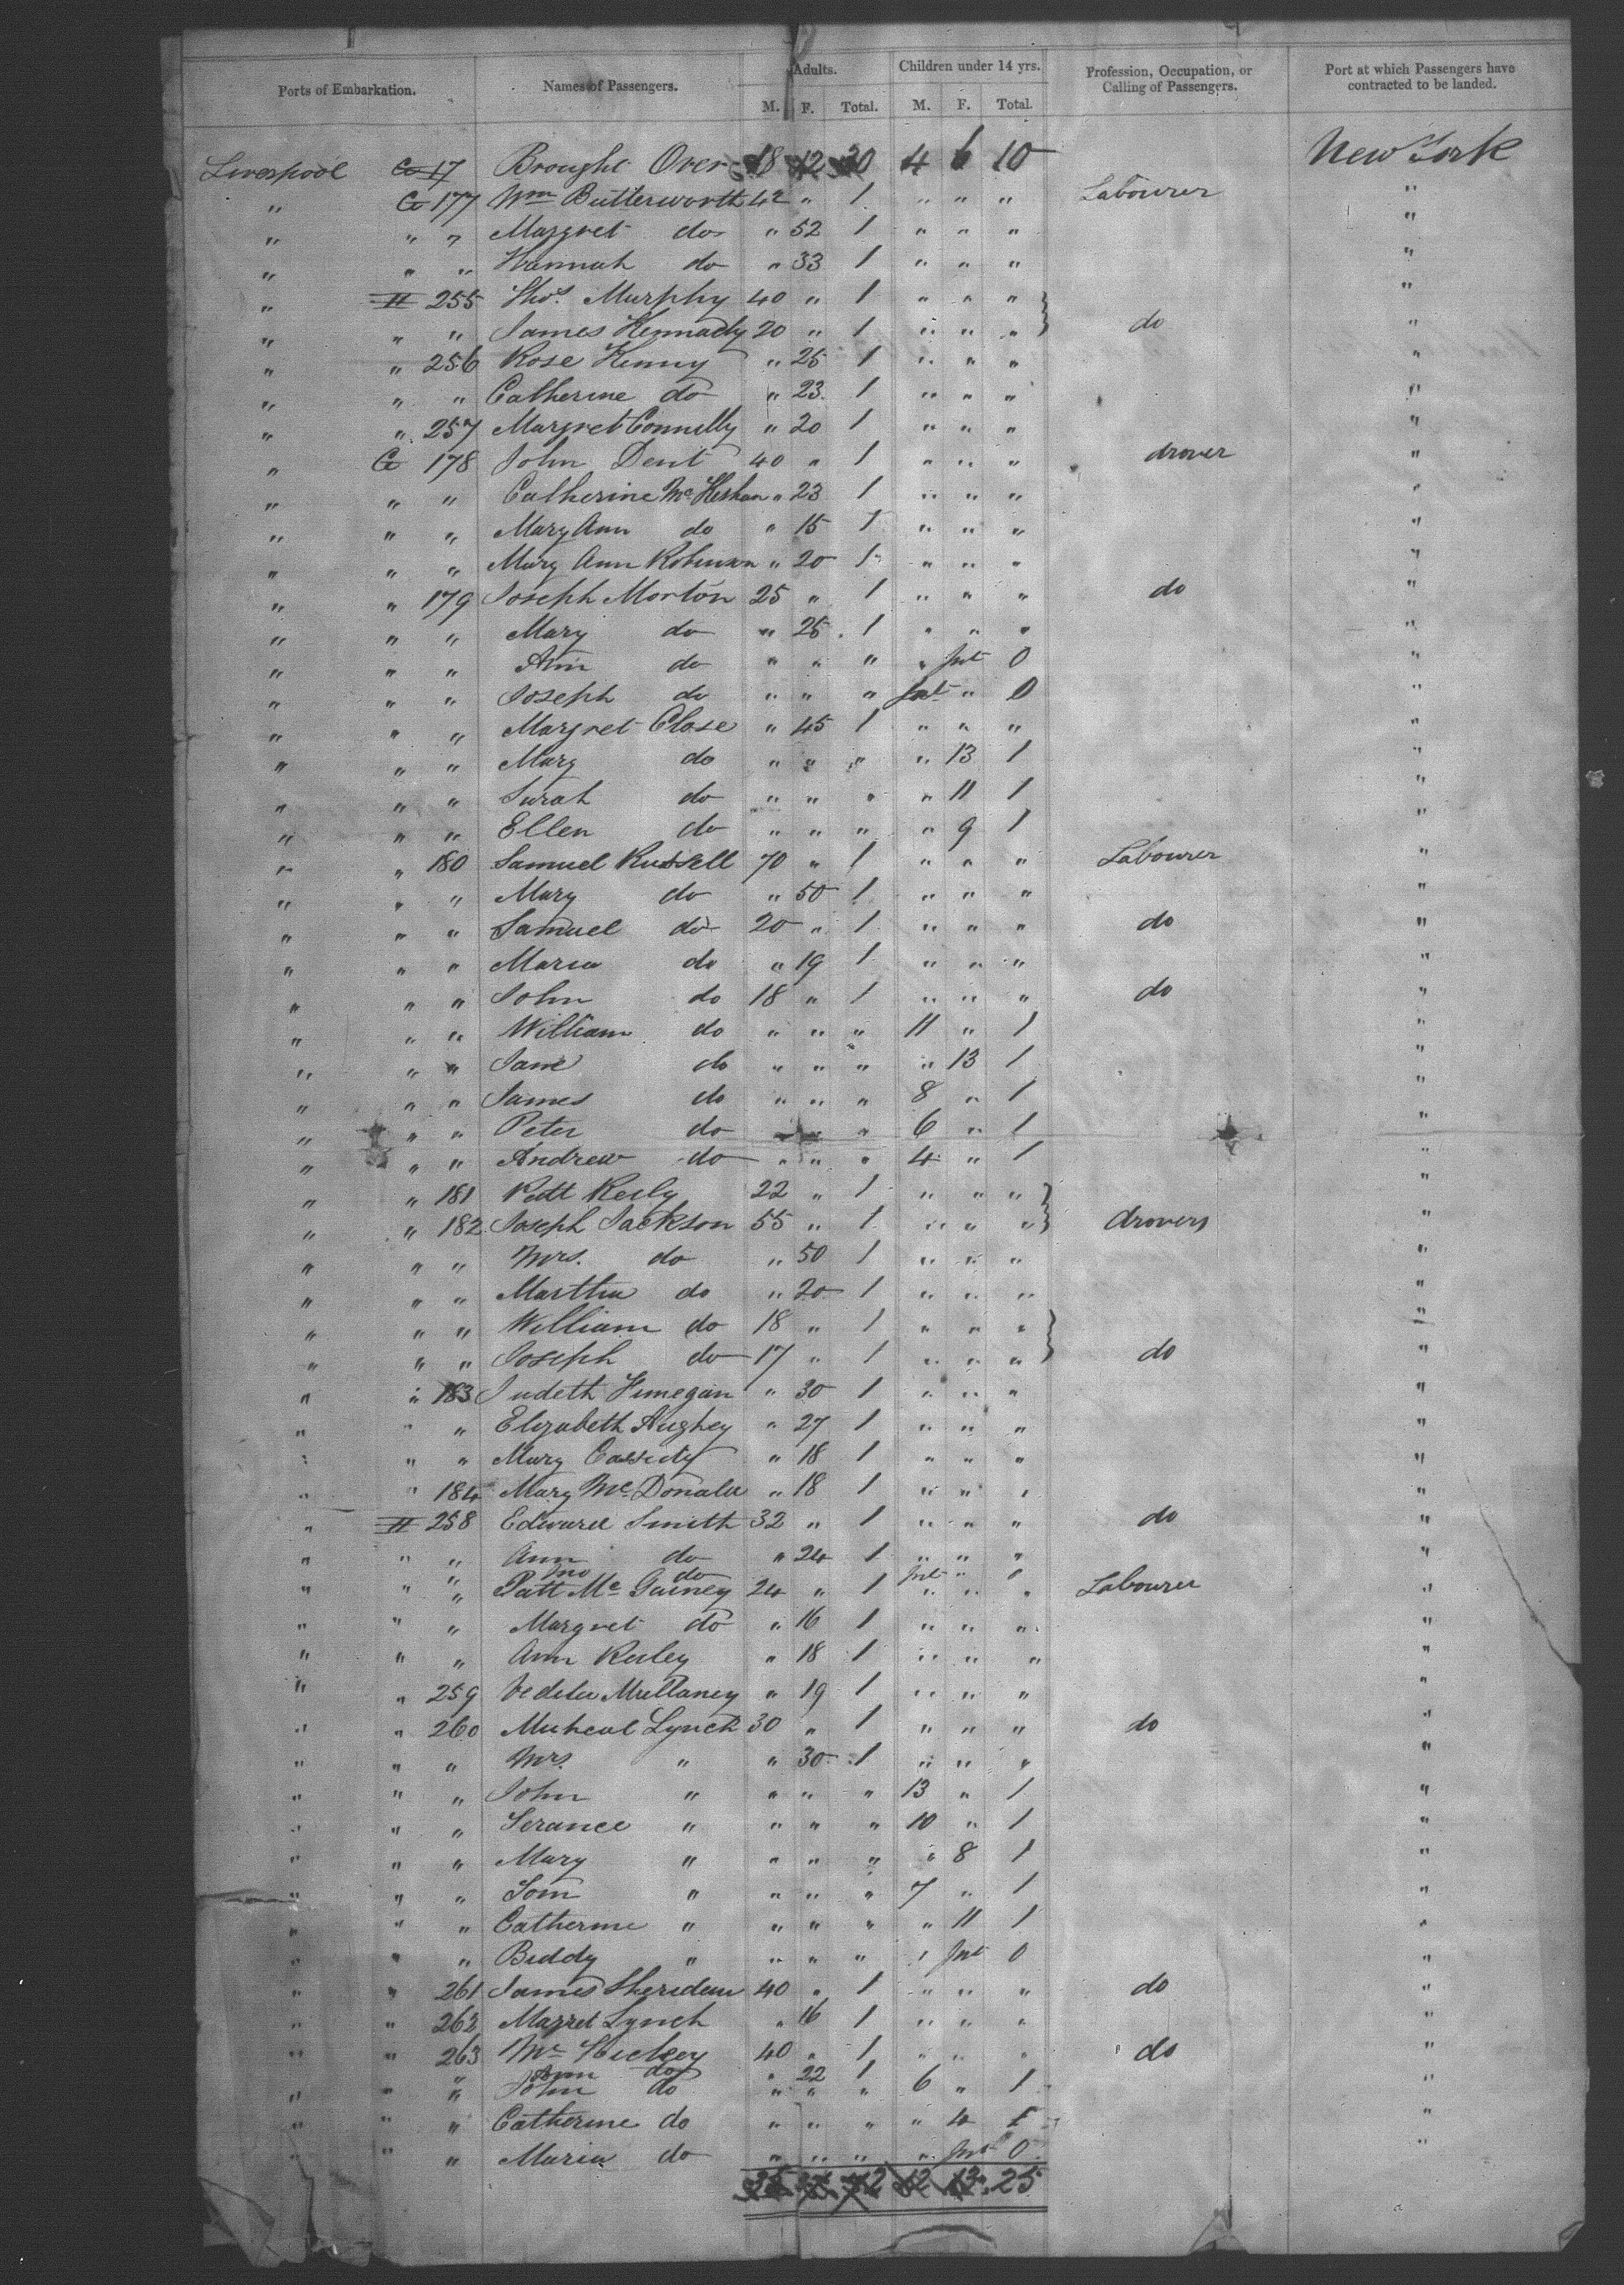 Ports of Embarkation. Names of Passengers. Adults. Children under 14 yrs. Profession, Occupation, or Calling of Passengers. Port at which Passengers have contracted to be landed.
M. F. Total. M. F. Total.
Liverpool G 17 Brought Over 18 12 30 4 6 10 New York
" G 177 Wm Butterworth 42 " 1 " " " Labourer "
" " " Margret do " 52 1 " " " "
" " " Hannah do " 33 1 " " " "
" H 255 Thos. Murphy 40 " 1 " " " "
" " " James Kennady 20 " 1 " " " do "
" " 256 Rose Kenny " 25 1 " " " "
" " " Catherine do " 23 1 " " " "
" " 257 Margret Connelly " 20 1 " " " "
" G 178 John Dent 40 " 1 " " " drover "
" " " Catherine " 23 1 " " " "
" " " Mary Ann do " 15 1 " " " "
" " " Mary Ann Robinson " 20 1 " " " "
" " 179 Joseph Morton 25 " 1 " " " do "
" " " Mary do " 25 1 " " " "
" " " Ann do " " " " Inf 0 "
" " " Joseph do " " " Inf " 0 "
" " " Margret Close " 45 1 " " " "
" " " Mary do " " " " 13 1 "
" " " Sarah do " " " " 11 1 "
" " " Ellen do " " " " 9 1 "
" " 180 Samuel Russell 70 " 1 " " " Labourer "
" " " Mary do " 50 1 " " " "
" " " Samuel do 20 " 1 " " " do "
" " " Maria do " 19 1 " " " "
" " " John do 18 " 1 " " " do "
" " " William do " " " 11 " 1 "
" " " Jane do " " " " 13 1 "
" " " James do " " " 8 " 1 "
" " " Peter do " " " 6 " 1 "
" " " Andrew do " " " 4 " 1 "
" " 181 Patt Reily 22 " 1 " " " "
" " 182 Joseph Jackson 55 " 1 " " " drovers "
" " " Mrs. do " 50 1 " " " "
" " " Martha do " 20 1 " " " "
" " " William do 18 " 1 " " " "
" " " Joseph do 17 " 1 " " " do "
" " 183 Judeth Finegan " 30 1 " " " "
" " " Elizabeth Hughey " 27 1 " " " "
" " " Mary Cassidy " 18 1 " " " "
" " 184 Mary McDonald " 18 1 " " " "
" H 258 Edward Smith 32 " 1 " " " do "
" " " Ann do " 24 1 " " " "
" Jno do Inf " 0
" " " Patt Mc Gainey 24 " 1 " " " Labourer "
" " " Margret do " 16 1 " " " "
" " " Ann Reiley " 18 1 " " " "
" " 259 Mullaney " 19 1 " " " "
" " 260 Micheal Lynch 30 " 1 " " " do "
" " " Mrs. " " 30 1 " " " "
" " " John " " " " 13 " 1 "
" " " Terance " " " " 10 " 1 "
" " " Mary " " " " " 8 1 "
" " " Tom " " " " 7 " 1 "
" " " Catherine " " " " " 11 1 "
" " " Biddy " " " " " Inf 0 "
" " 261 James Sheridan 40 " 1 " " " do "
" " 262 Margret Lynch " 16 1 " " " "
" " 263 Mr Hickey 40 " 1 " " " do "
" Ann do " 22 1
" " " John do " " " 6 " 1 "
" " " Catherine do " " " " 4 1 "
" " " Maria do " " " " Inf 0 "
12 13 25